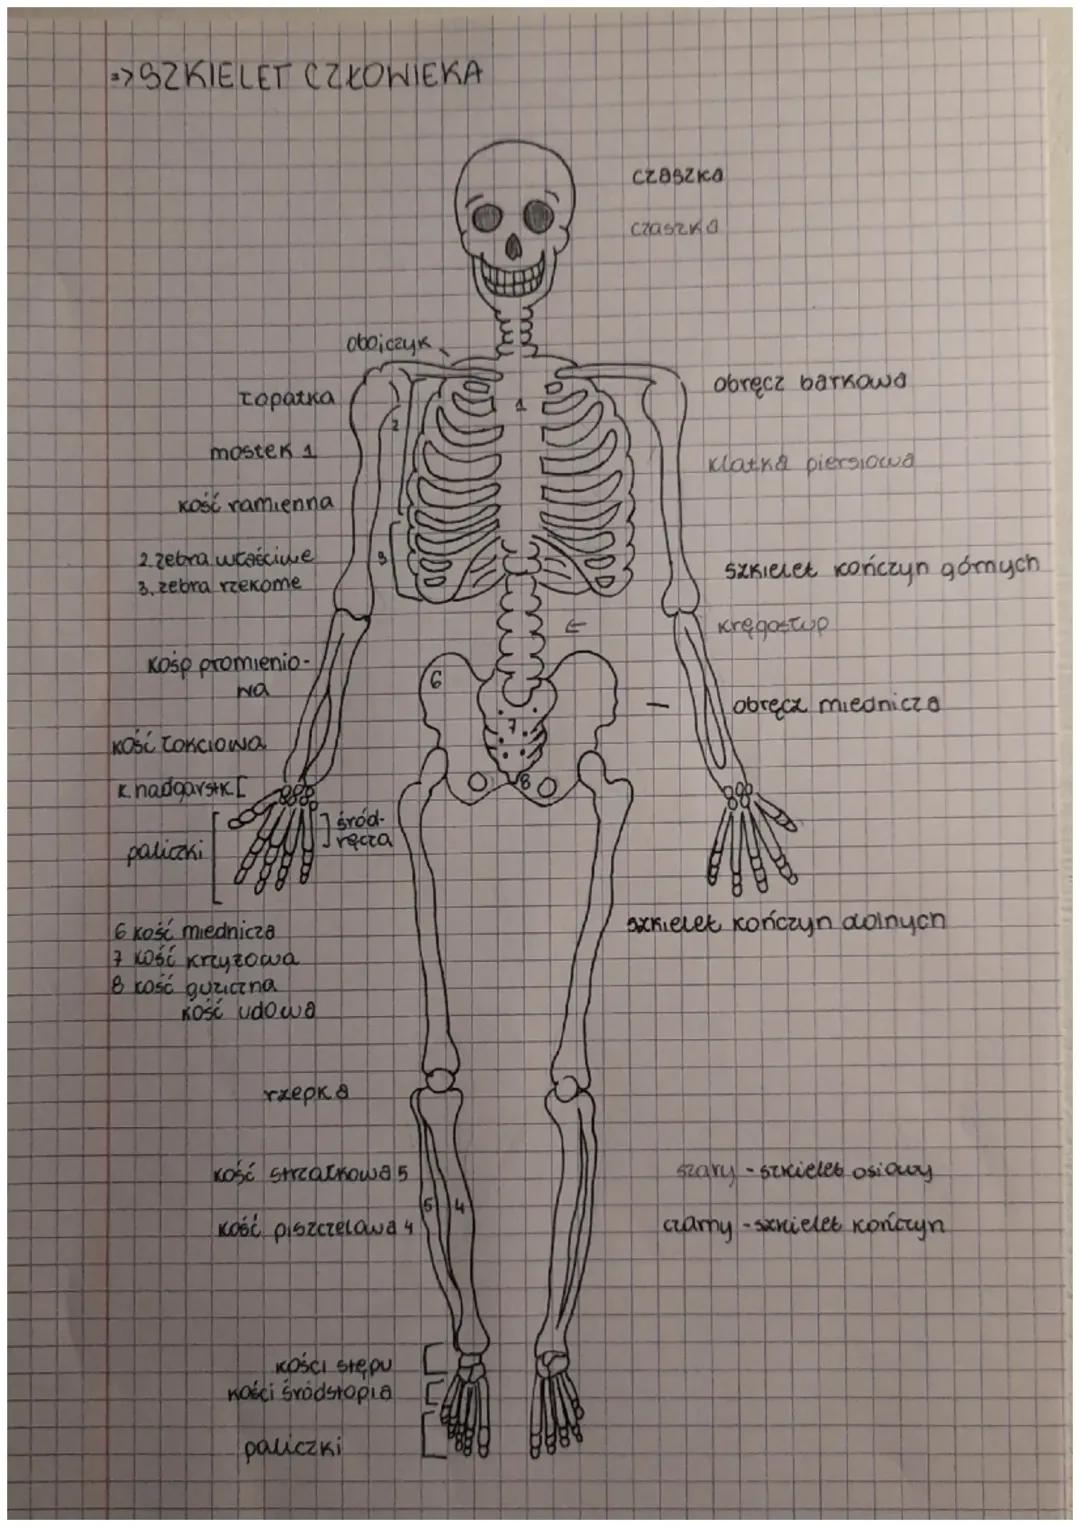 => SZKIELET CZŁOWIEKA
czaszka
czaszka
obojczyk
obręcz barkowa
łopatka
1
2
mostek 1
klatka piersiowa
kość ramienna
2. żebra właściwe
3. żebra rzekome
3
szkielet kończyn górnych
kręgosłup
kośp promienio-
wa
6
7
obręcz miednicza
kość łokciowa
k. nadgarstk. [
8
śród-
ręcza
paliczki
szkielet kończyn dolnych
6 kość miednicza
7 kość krzyżowa
8 kość guziczna
kość udowa
rzepka
kość strzałkowa 5
szary - szkielet osiowy
5
4
kość piszczelowa 4
czarny - szkielet kończyn
kości stępu
kości śródstopia
paliczki